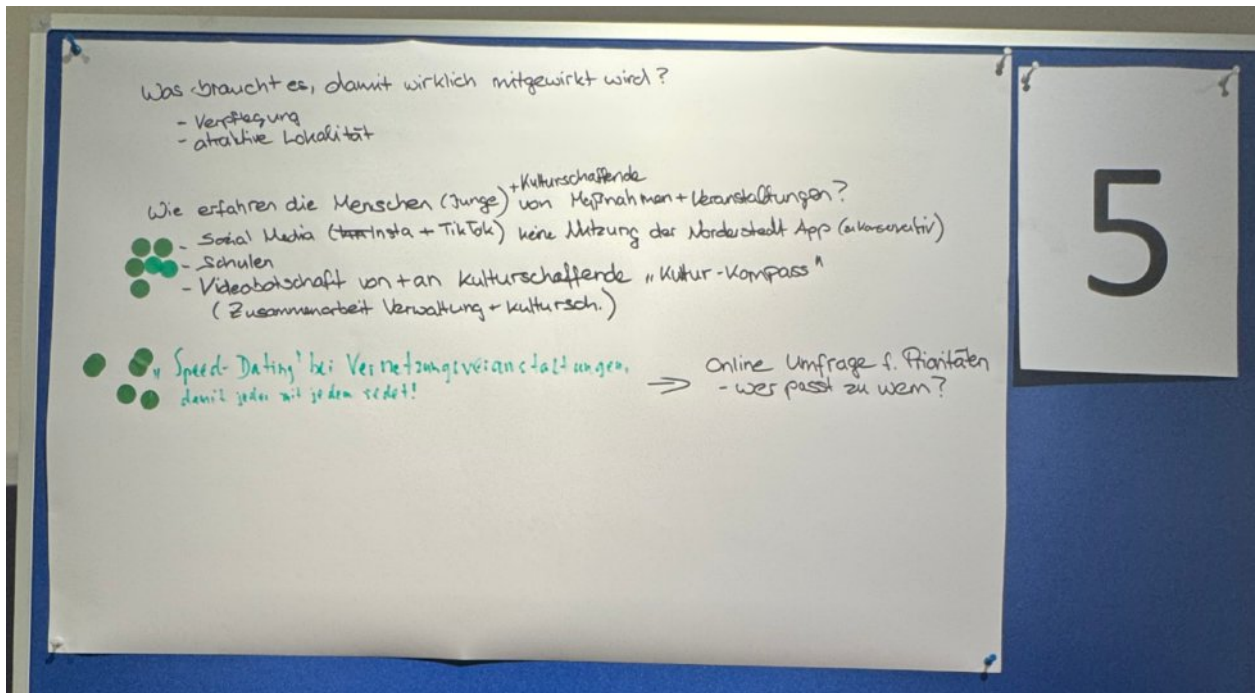 Was braucht es, damit wirklich mitgewirkt wird?
- Verpflegung
- atraktive Lokalität
+ Kulturschaffende
Wie erfahren die Menschen (Junge) von Maßnahmen + Veranstaltungen?
- Sozial Media (Insta + TikTok) keine Nutzung der Norderstedt App (zu konservativ)
- Schulen
- Videobotschaft von + an Kulturschaffende „Kultur-Kompass"
(Zusammenarbeit Verwaltung + Kultursch.)
„Speed-Dating" bei Vernetzungsveranstaltungen,
damit jeder mit jedem redet!
→ Online Umfrage f. Prioritäten
- wer passt zu wem?
5